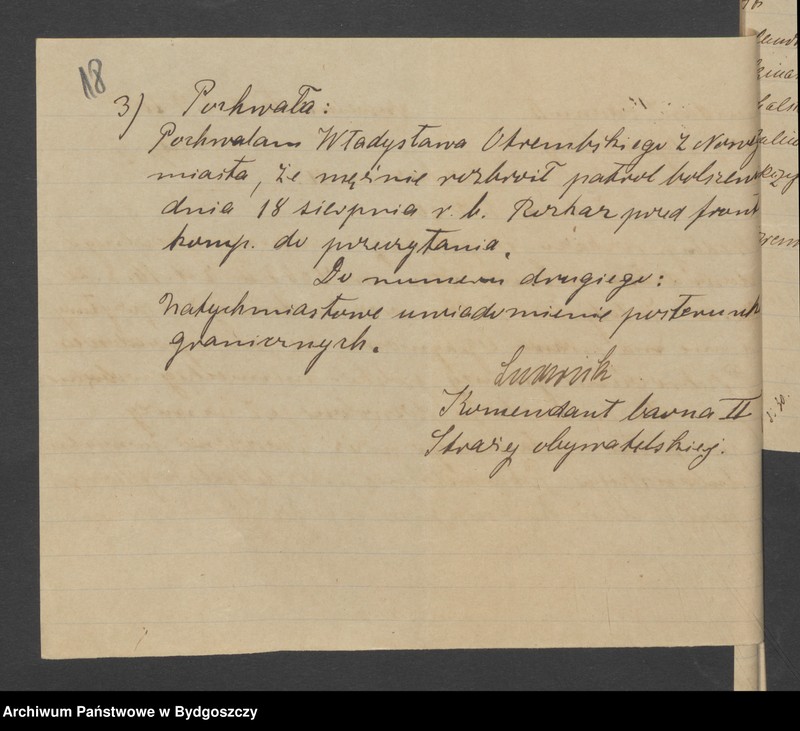 18
3) Pochwała:
Pochwalam Władysława Otrembskiego z Nowego
miasta, że mężnie rozbroił patrol bolszew
dnia 18 sierpnia r. b. Rozkaz przed front
komp. do przeczytania.
Do numeru drugiego:
Natychmiastowe uwiadomienie posterunk
granicznych.
Komendant baona II
Straży obywatelskiej.
Archiwum Państwowe w Bydgoszczy